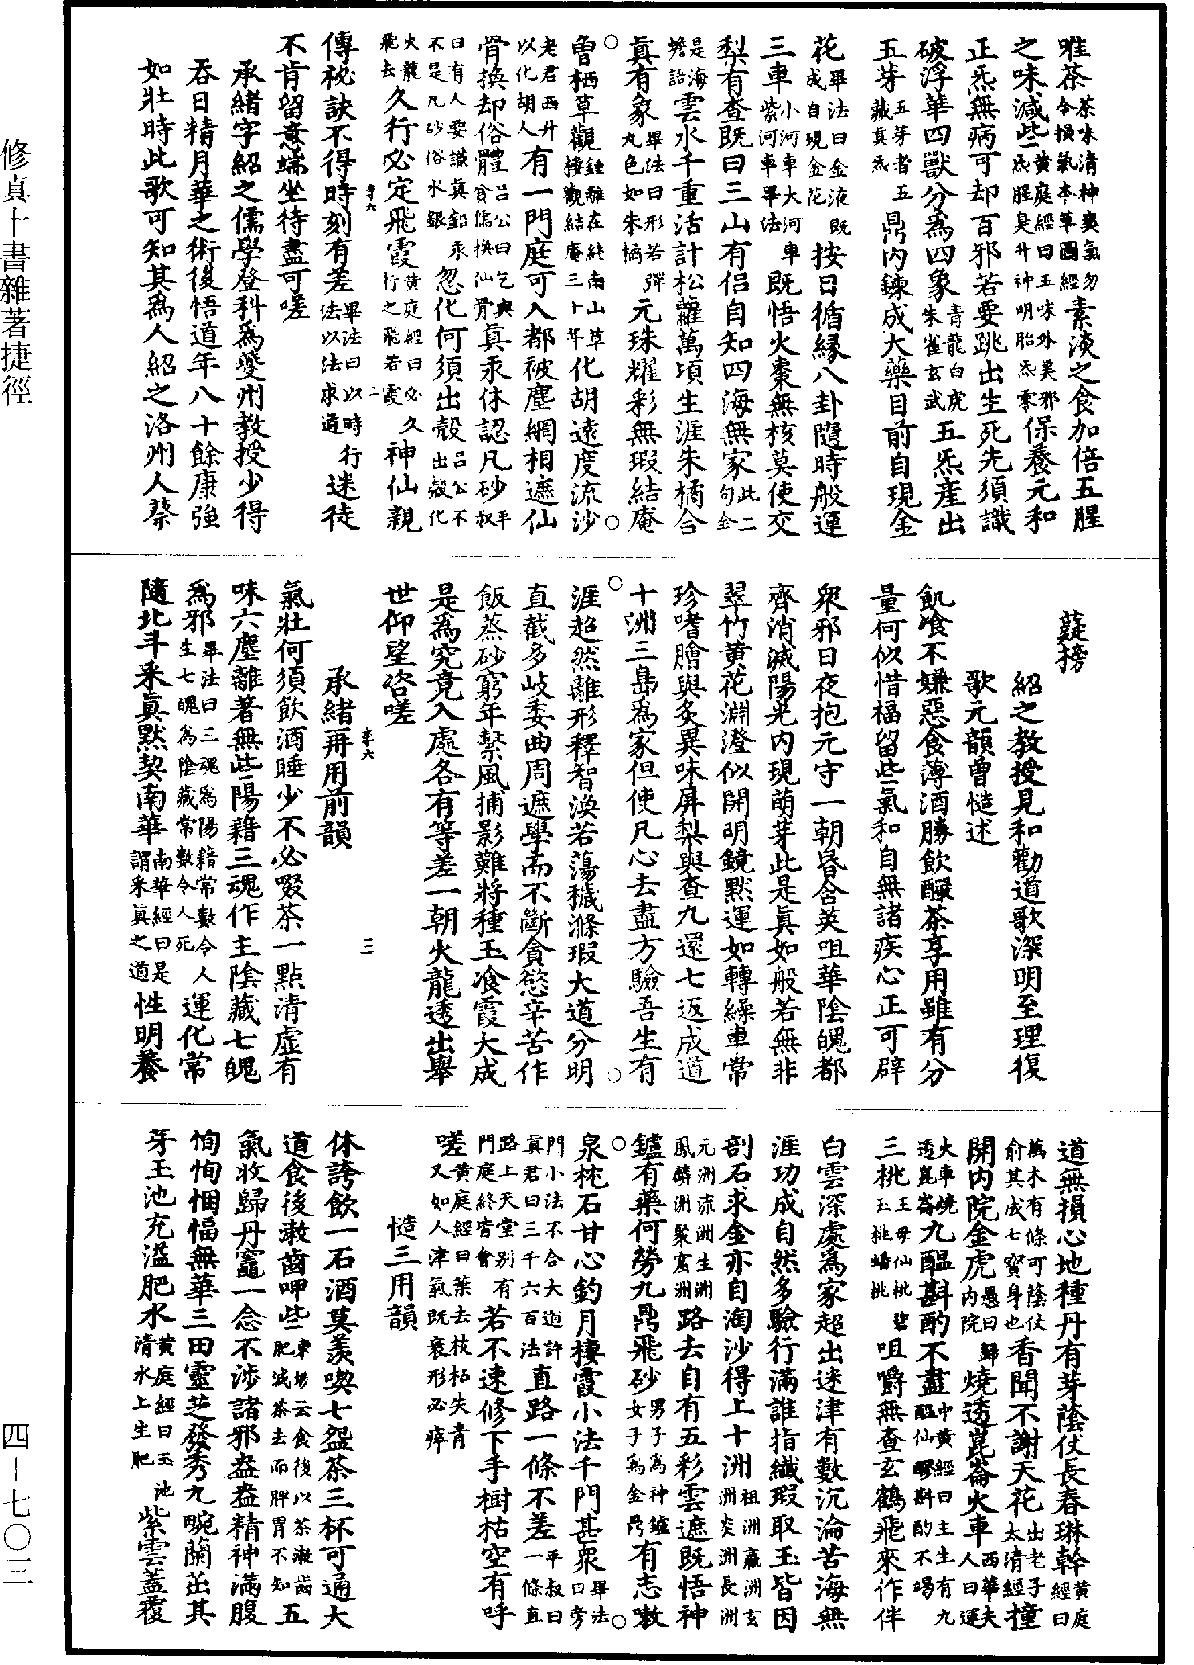 修真十書雜著捷徑
四－七〇三
啜茶茶味清神爽氣勿令損氣本草圖經素淡之食加倍五腥
之味減些黃庭經曰五味外美邪炁腥臭升神明胎炁零保養元和
正炁無病可却百邪若要跳出生死先須識
破浮華四獸分為四象青龍白虎朱雀玄武五炁產出
五芽五芽者五藏真炁鼎內鍊成大藥目前自現金
花畢法曰金液既成自現金花按日循緣八卦隨時般運
三車小河車大河車紫河車畢法既悟火棗無核莫使交
梨有查既曰三山有侶自知四海無家此二句金
是海蟾詒雲水千重活計松蘿萬頃生涯朱橘合
真有象畢法曰形若彈丸色如朱橘元珠耀彩無瑕結庵
魯栖草觀鍾離在終南山草樓觀結庵三十年化胡遠度流沙
老君西升以化胡人有一門庭可入都被塵網相遮仙
骨換却俗體呂公曰乞與貪儒換仙骨真汞休認凡砂平叔
曰有人要識真鉛汞不是凡砂俗水銀忽化何須出殼呂公不出殼化
火龍飛去久行必定飛霞黃庭經曰必久行之飛若霞神仙親
傳祕訣不得時刻有差畢法曰以時法以法求道行迷徒
不肯留意端坐待盡可嗟
承緒字紹之儒學登科為夔州教授少得
吞日精月華之術後悟道年八十餘康強
如壯時此歌可知其為人紹之洛州人蔡
薿榜
紹之教授見和勸道歌深明至理復
歌元韻曾慥述
飢飡不嫌惡食薄酒勝飲釅茶享用雖有分
量何似惜福留些氣和自無諸疾心正可辟
眾邪日夜抱元守一朝昏含英咀華陰魄都
齊消滅陽光內現萌芽此是真如般若無非
翠竹黃花淵澄似開明鏡默運如轉繰車常
珍嗜膾與炙異味屏梨與查九還七返成道
十洲三島為家但使凡心去盡方驗吾生有
涯超然離形釋智渙若蕩穢滌瑕大道分明
直截多岐委曲周遮學而不斷貪慾辛苦作
飯蒸砂窮年繫風捕影難將種玉飡霞大成
是為究竟入處各有等差一朝火龍透出舉
世仰望咨嗟
承緒再用前韻
氣壯何須飲酒睡少不必啜茶一點清虛有
味六塵離著無些陽籍三魂作主陰藏七魄
為邪畢法曰三魂為陽籍常數令人生七魄為陰藏常數令人死運化常
隨北斗釆真默契南華南華經曰是謂釆真之道性明養
道無損心地種丹有芽蔭仗長春琳幹黃庭經曰
萬木有條可蔭仗俞其成七寶身也香聞不謝天花出老子太清經撞
開內院金虎愚曰歸內院燒透崑崙火車西華夫人曰運
火車燒透崑崙九醞斟酌不盡中黃經曰主生有九醞仙醪斟酌不竭
三桃王母仙桃碧玉桃蟠桃咀嚼無查玄鶴飛來作伴
白雲深處為家超出迷津有數沉淪苦海無
涯功成自然多驗行滿誰指纖瑕取玉皆因
剖石求金亦自淘沙得上十洲祖洲瀛洲玄洲炎洲長洲
元洲流洲生洲鳳麟洲聚窟洲路去自有五彩雲遮既悟神
鑪有藥何勞九鼎飛砂男子為神鑪女子為金鼎有志漱
泉枕石甘心釣月棲霞小法千門甚衆畢法曰旁
門小法不合大道許真君曰三千六百法直路一條不差平叔曰一條直
路上天堂別有門庭終皆會若不速修下手樹枯空有呼
嗟黃庭經曰葉去枝枯失青又如人津氣既衰形必瘁
慥三用韻
休誇飲一石酒莫羨喫七盌茶三杯可通大
道食後漱齒呷些東坡云食後以茶漱齒肥減茶去而脾胃不知五
氣收歸丹竈一念不涉諸邪盎盎精神滿腹
恂恂悃愊無華三田靈芝發秀九畹蘭茁其
芽玉池充溢肥水黃庭經曰玉池清水上生肥紫雲蓋覆